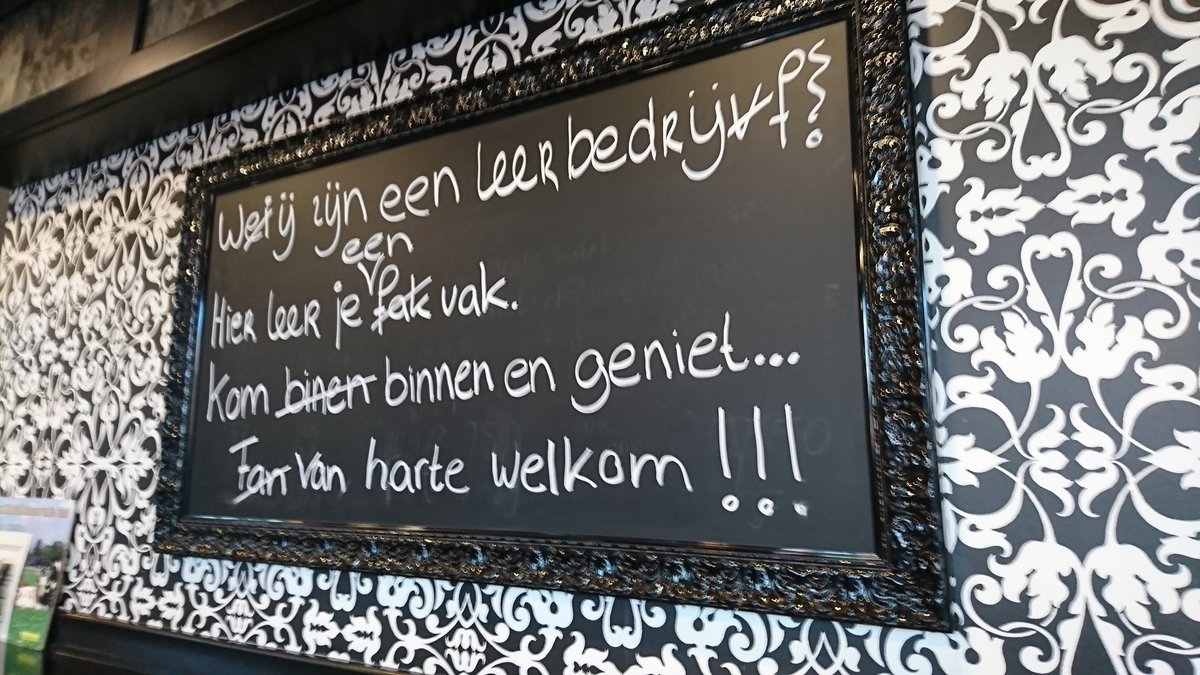 Weiij zijn een leerbedrijvf!
een
Hier leer je fak vak.
Kom binen binnen en geniet...
Fan van harte welkom !!!